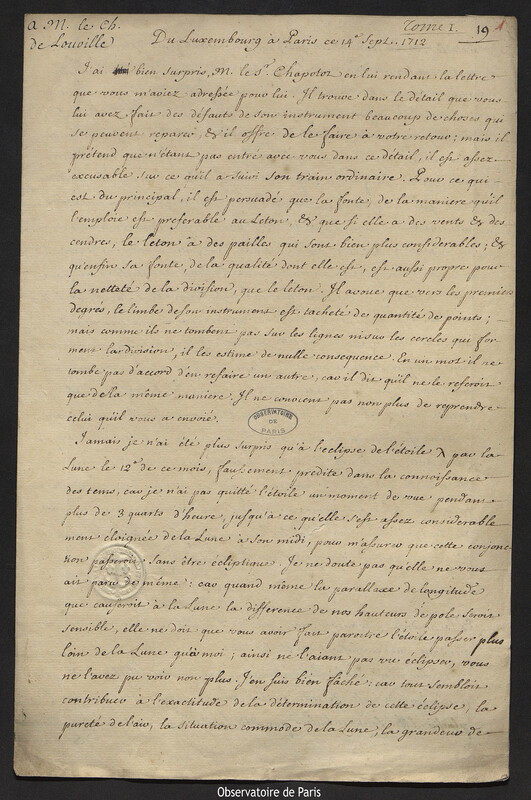 A M. le Ch.
de Louville
Du Luxembourg à Paris ce 14e Sept. 1712
Tome I.
19
J'ai bien surpris, M. le Sr. Chapotot en lui rendant la lettre
que vous m'aviez adressée pour lui. Il trouve dans le détail que vous
lui avez fait des défauts de son instrument beaucoup de choses qui
se peuvent reparer, & il offre de le faire à votre retour; mais il
prétend que n'étant pas entré avec vous dans ce détail, il est assez
excusable sur ce qu'il a suivi son train ordinaire. Pour ce qui
est du principal, il est persuadé que la fonte, de la maniere qu'il
l'emploie est preferable au Leton, & que si elle a des vents & des
cendres, le leton a des pailles qui sont bien plus considerables; &
qu'enfin sa fonte, de la qualité dont elle est, est aussi propre pour
la netteté de la division, que le leton. Il avoue que vers les premiers
degrés, le limbe de son instrument est tacheté de quantité de points;
mais comme ils ne tombent pas sur les lignes ni sur les cercles qui for-
ment la division, il les estime de nulle consequence. En un mot il ne
tombe pas d'accord d'en refaire un autre, car il dit qu'il ne le referoit
que de la même maniere. Il ne convient pas non plus de reprendre
celui qu'il vous a envoié.
OBSERVATOIRE
DE
PARIS
Jamais je n'ai été plus surpris qu'à l'eclipse de l'étoile λ par la
Lune le 12e de ce mois, faussement prédite dans la connoissance
des tems, car je n'ai pas quitté l'étoile un moment de vue pendant
plus de 3 quarts d'heure, jusqu'à ce qu'elle s'est assez considerable
ment éloignée de la Lune à son midi, pour m'assurer que cette conjonc
tion passeroit sans être écliptique. Je ne doute pas qu'elle ne vous
ait paru de même: car quand même la parallaxe de longitude
que causeroit à la Lune la difference de nos hauteurs de pole seroit
sensible, elle ne doit que vous avoir fait paroitre l'étoile passer plus
loin de la Lune qu'à moi; ainsi ne l'aiant pas vu éclipser, vous
ne l'avez pu voir non plus. J'en suis bien fâché: car tout sembloit
contribuer à l'exactitude de la détermination de cette éclipse, la
pureté de l'air, la situation commode de la Lune, la grandeur de
Observatoire de Paris